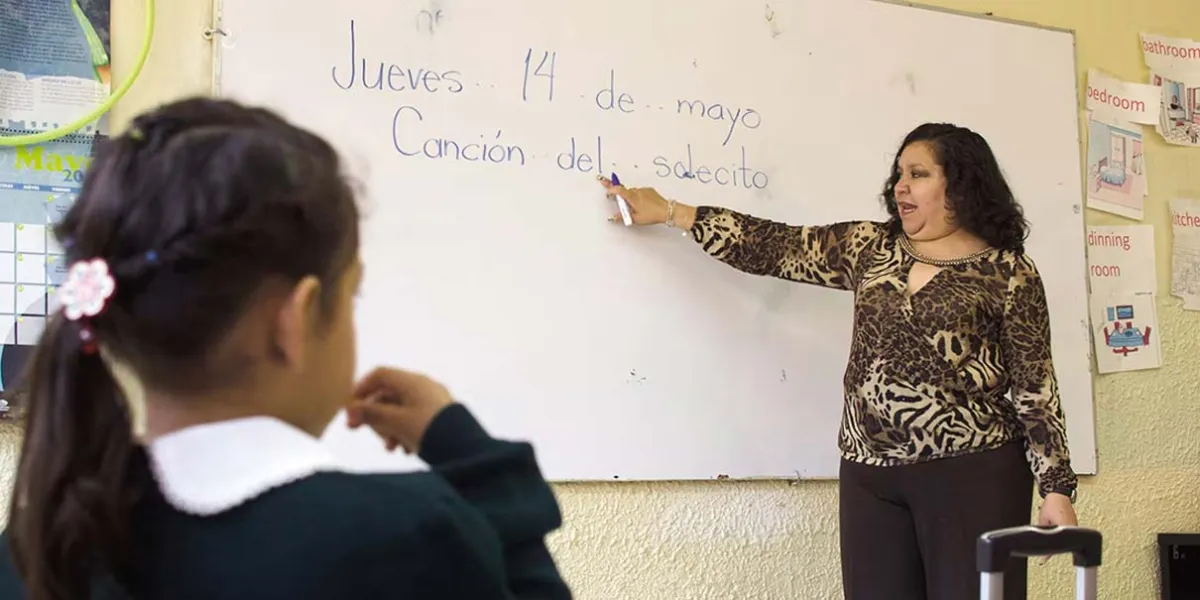 Jueves 14 de mayo
Canción del solecito
Mayo
bathroom
bedroom
dinning
room